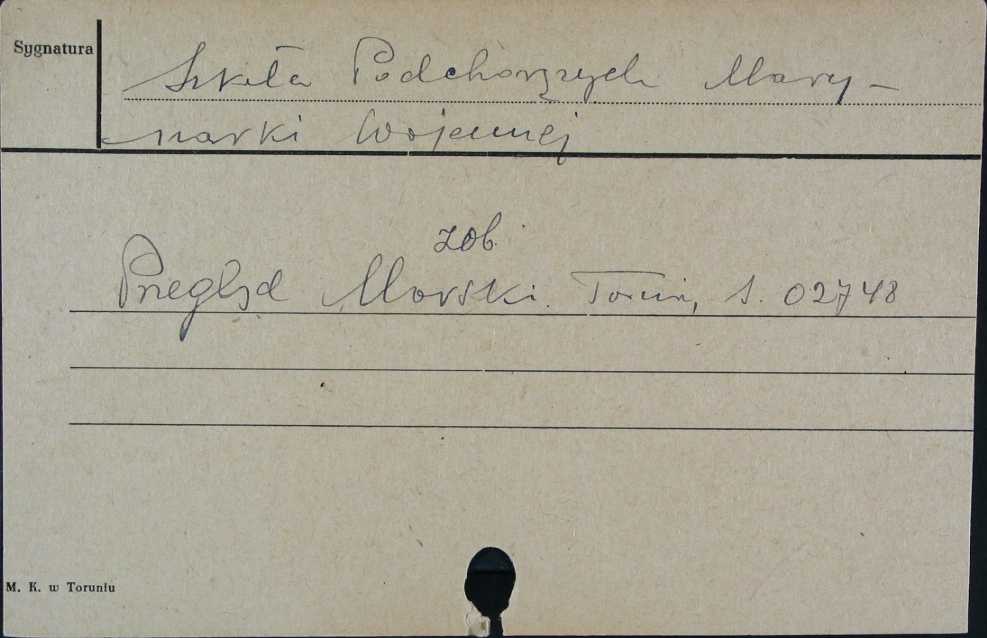 Sygnatura
Szkoła Podchorążych Mary-
narki Wojennej
zob.
Przegląd Morski. Toruń, S. 02748
M. K. w Toruniu